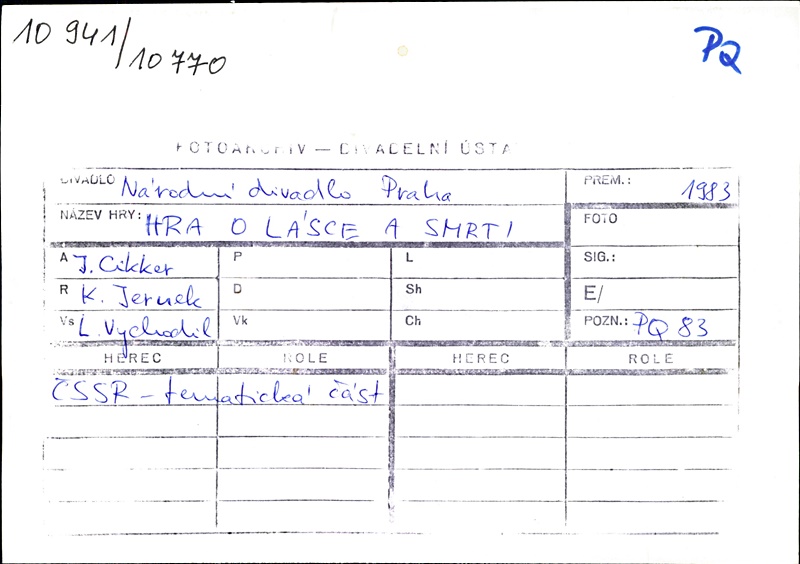 10 941/10 770
PQ
FOTOARCHIV — DIVADELNÍ ÚSTA
DIVADLO Národní divadlo Praha
PREM.: 1983
NÁZEV HRY: HRA O LÁSCE A SMRTI
FOTO
A J. Cikker P L SIG.:
R K. Jernek D Sh E/
Vs L. Vychodil Vk Ch POZN.: PQ 83
HEREC ROLE HEREC ROLE
ČSSR – tematická část